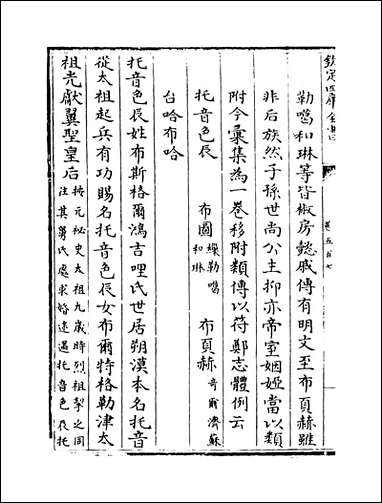 欽定四庫全書
卷五百七
勒噶和琳等皆椒房懿戚傳有明文至布頁赫雖
非后族然子孫世尚公主抑亦帝室姻婭當以類
附今彙集為一卷移附類傳以符鄭志體例云
托音色辰　布圖　繅勒噶和琳　布頁赫　奇爾濟蘇
台哈布哈
托音色辰姓布斯格爾鴻吉哩氏世居朔漠本名托音
從太祖起兵有功賜名托音色辰女布爾特格勒津太
祖光獻翼聖皇后　按元秘史太祖九歲時烈祖挈之同
往其舅氏處求婚途遇托音色辰托